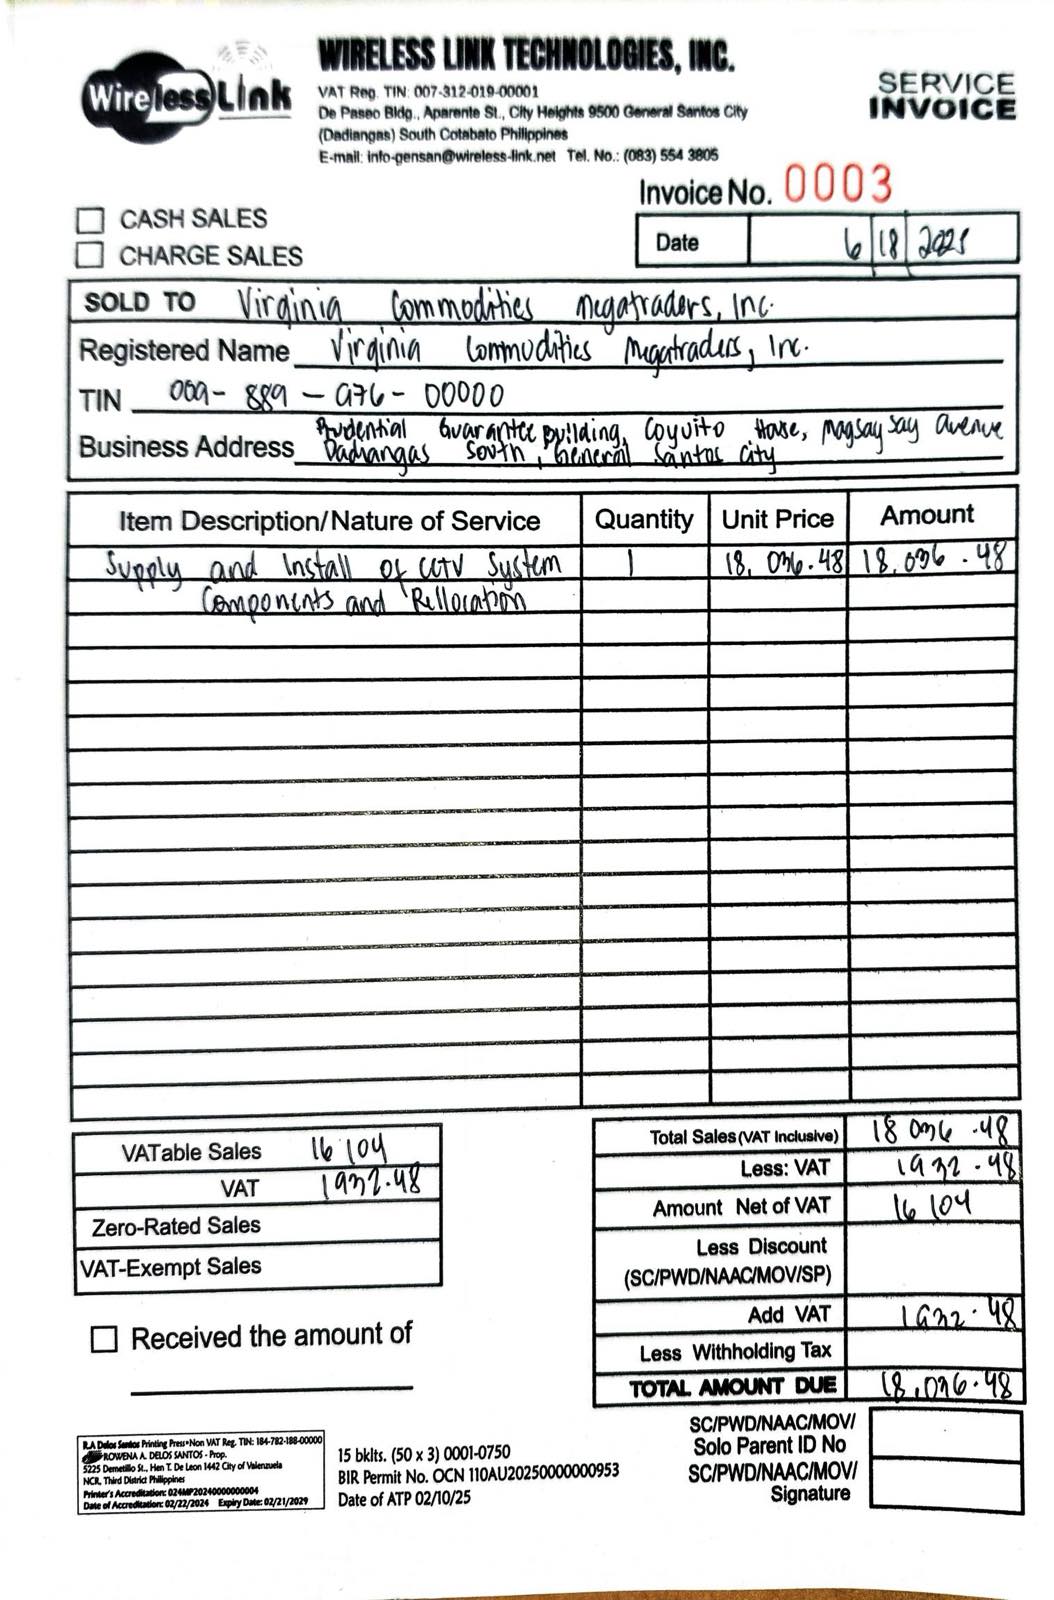 Wireless Link
WIRELESS LINK TECHNOLOGIES, INC.
VAT Reg. TIN: 007-312-019-00001
De Paseo Bldg., Aparente St., City Heights 9500 General Santos City
(Dadiangas) South Cotabato Philippines
E-mail: info-gensan@wireless-link.net Tel. No.: (083) 554 3805
SERVICE
INVOICE
Invoice No. 0003
CASH SALES
CHARGE SALES
Date 6 18 2025
SOLD TO Virginia Commodities Megatraders, Inc.
Registered Name Virginia Commodities Megatraders, Inc.
TIN 009-889-976-00000
Prudential Guarantee Building, Coyuito House, Magsaysay Avenue
Business Address Dadiangas South, General Santos City
Item Description/Nature of Service Quantity Unit Price Amount
Supply and Install of CCTV System 1 18,036.48 18,036.48
Components and Rellocation
VATable Sales 16 104
VAT 1932.48
Zero-Rated Sales
VAT-Exempt Sales
Total Sales (VAT Inclusive) 18 036.48
Less: VAT 1932.48
Amount Net of VAT 16 104
Less Discount
(SC/PWD/NAAC/MOV/SP)
Add VAT 1932.48
Less Withholding Tax
TOTAL AMOUNT DUE 18,036.48
Received the amount of
SC/PWD/NAAC/MOV/
Solo Parent ID No
SC/PWD/NAAC/MOV/
Signature
R.A Delos Santos Printing Press•Non VAT Reg. TIN: 184-782-188-00000
ROWENA A. DELOS SANTOS - Prop.
5225 Demetillo St., Hen T. De Leon 1442 City of Valenzuela
NCR, Third District Philippines
Printer's Accreditation: 024MP20240000000004
Date of Accreditation: 02/22/2024 Expiry Date: 02/21/2029
15 bklts. (50 x 3) 0001-0750
BIR Permit No. OCN 110AU20250000000953
Date of ATP 02/10/25